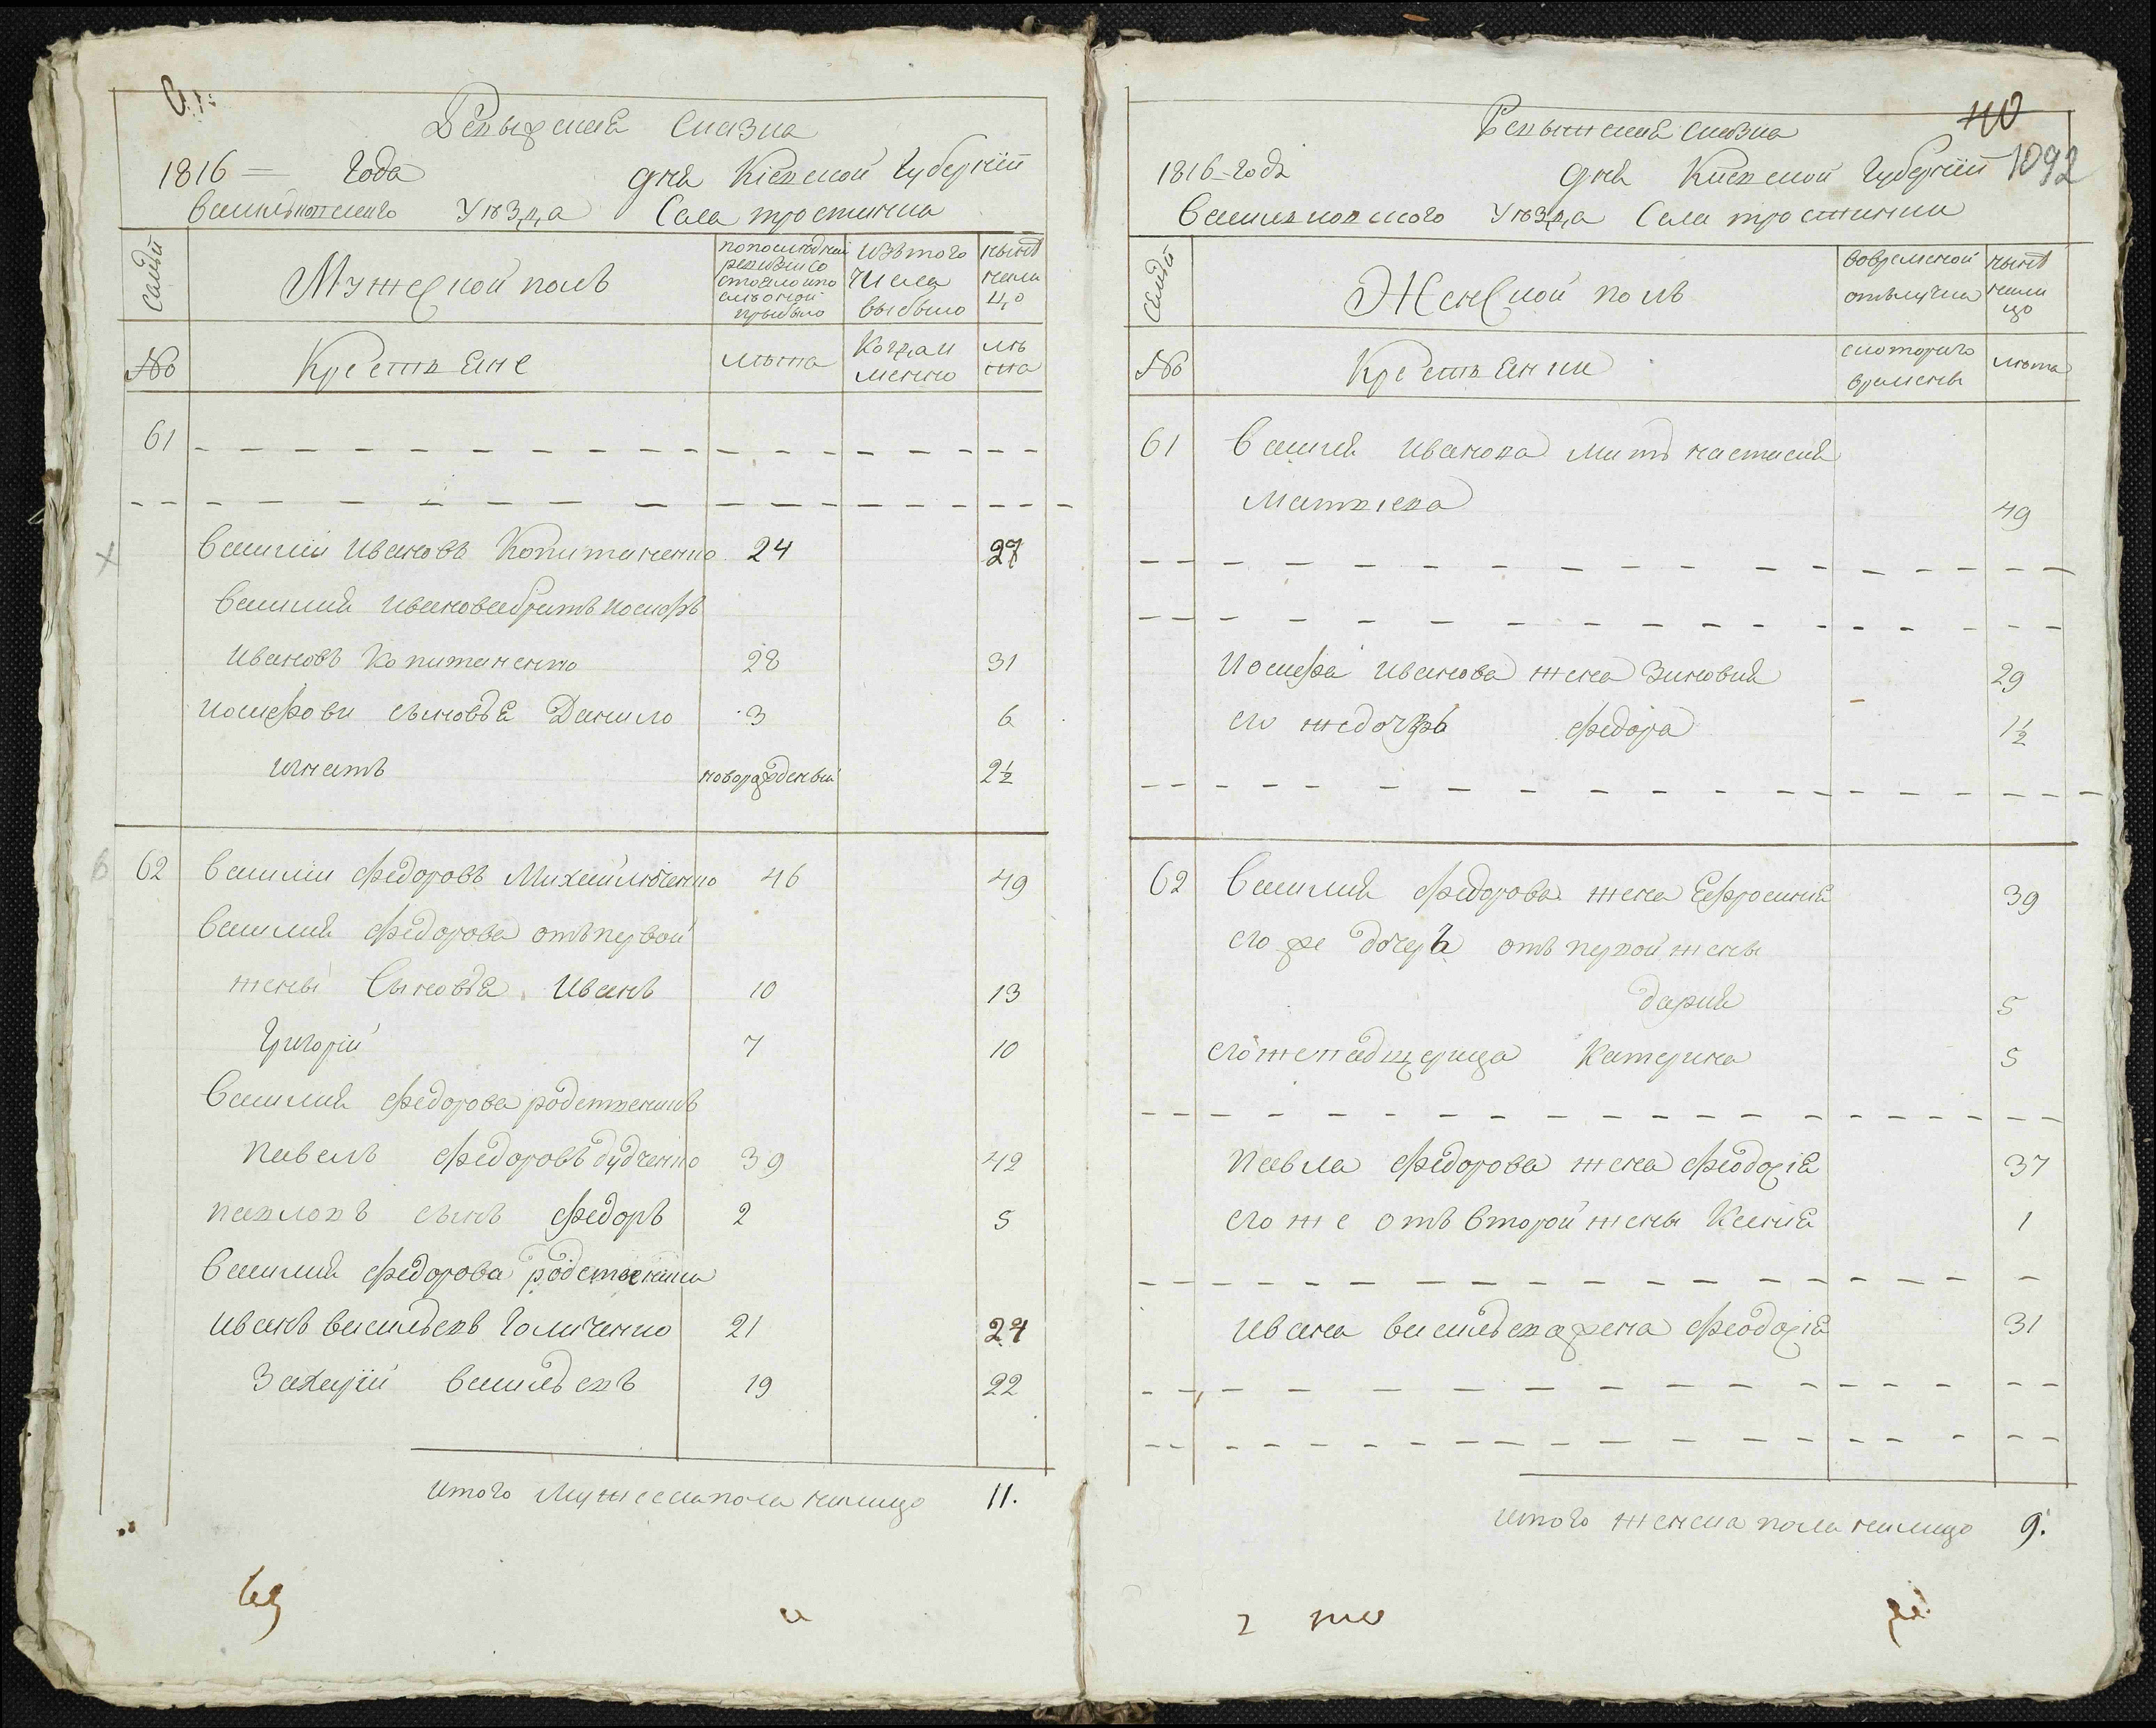 Ревыжская Сказка
1816 — Года дня Кіевской Губерніи
Василковского Уѣзда Села тростинки
Семьи
Мужеской полъ
попоследней ревизіи состояло ипослѣ оной прибыло
Изътого Числа выбыло
нынѣ налицо
№
Крестьяне
лѣта
Когда именно
лѣта
61
Василій Ивановъ Копитаненко 24 27
Василия Иванова братъ иосифъ
Ивановъ Копитаненко 28 31
иосифови сыновья Данило 3 6
игнатъ новоражденый 2 1/2
62 Василій Федоровъ Михайлюченко 46 49
Василия Федорова отъпервой
жены Сыновья Иванъ 10 13
Григорій 7 10
Василия Федорова родственикъ
Павелъ Федоровъ дудченко 39 42
павловъ сынъ Федоръ 2 5
Василия Федорова родственики
Иванъ васильевъ Голиченко 21 24
Захарій васильевъ 19 22
итого Мужеска пола налицо 11.
40
1092
Ревыжская сказка
1816-Года дня Киевской Губерніи
Василковского Уѣзда Села тростинки
Семьи
Женской полъ
вовременой отълучки
нынѣ налицо
№
Крестьянки
скоторого времены
лѣта
61 Василия Иванова мать настасия
Матвіева 49
Иосифа Иванова жена Зиновия 29
его жедочеръ федора 1 1/2
62 Василия Федорова жена Ефросиния 39
его же дочеръ отъ первой жены
дария 5
егожепадщерица Катерина 5
Павла Федорова жена Феодосія 37
его же отъ второй жены Ксения 1
Ивана васильева жена Феодосія 31
итого женска пола налицо 9.